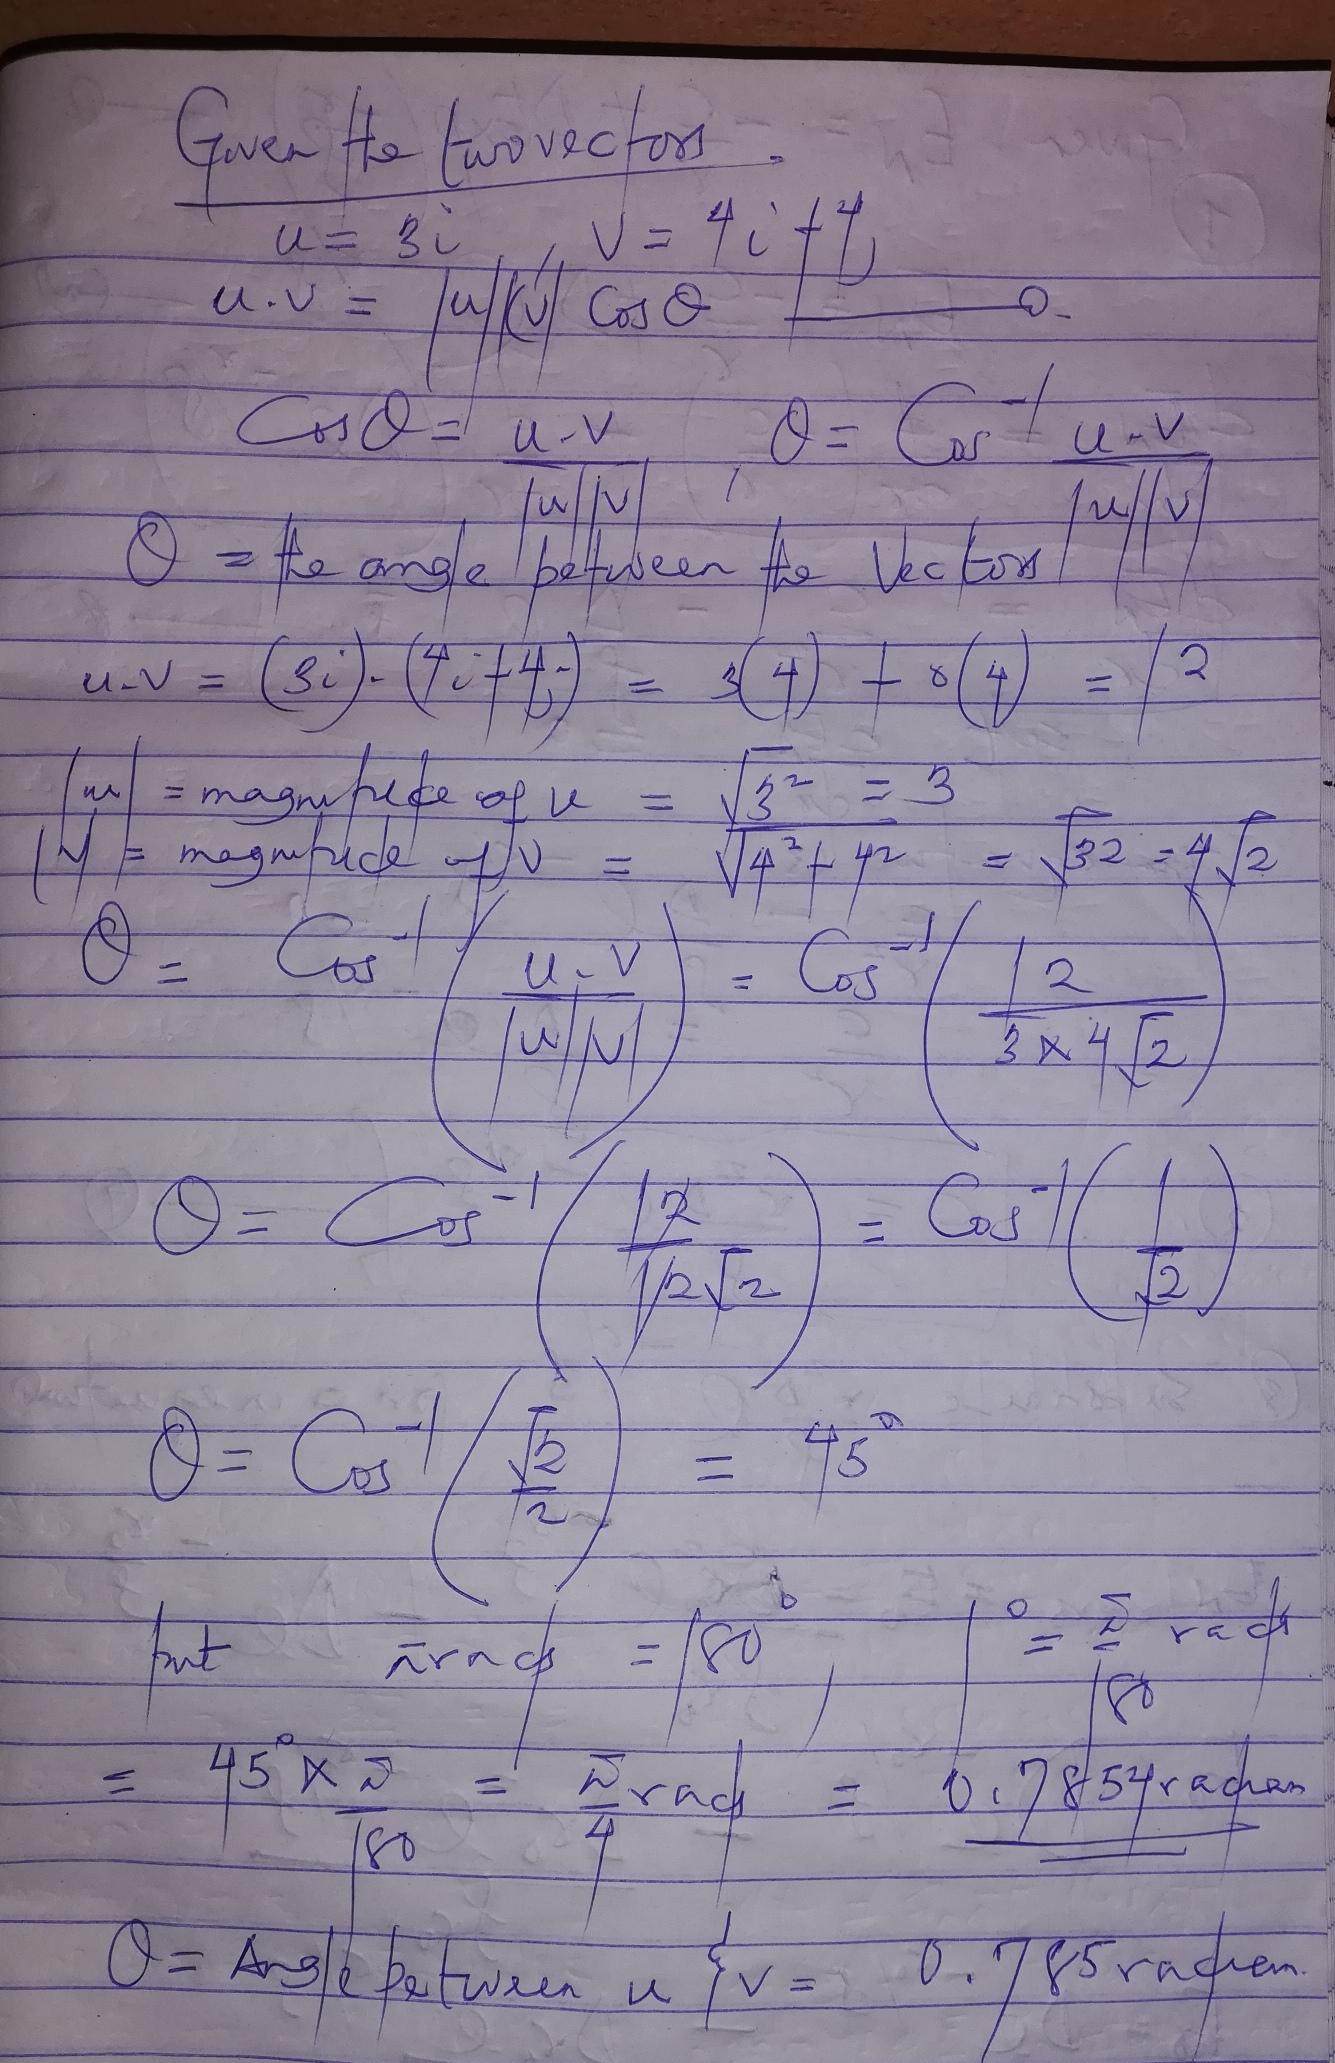 Given the two vectors.
u = 3i , V = 4i + 4j
u.v = |u||v| Cos θ ——— 0.
Cos θ = u.v / |u||v| , θ = Cos⁻¹ u.v / |u||v|
θ = the angle between the Vectors
u.v = (3i).(4i+4j) = 3(4) + 0(4) = 12
|u| = magnitude of u = √3² = 3
|v| = magnitude of v = √4²+4² = √32 = 4√2
θ = Cos⁻¹ (u.v / |u||v|) = Cos⁻¹ (12 / 3×4√2)
θ = Cos⁻¹ (12 / 12√2) = Cos⁻¹ (1 / √2)
θ = Cos⁻¹ (√2 / 2) = 45°
but π rads = 180° , 1° = π / 180 rads
= 45° × π / 180 = π / 4 rads = 0.7854 radian
θ = Angle between u & v = 0.785 radian.